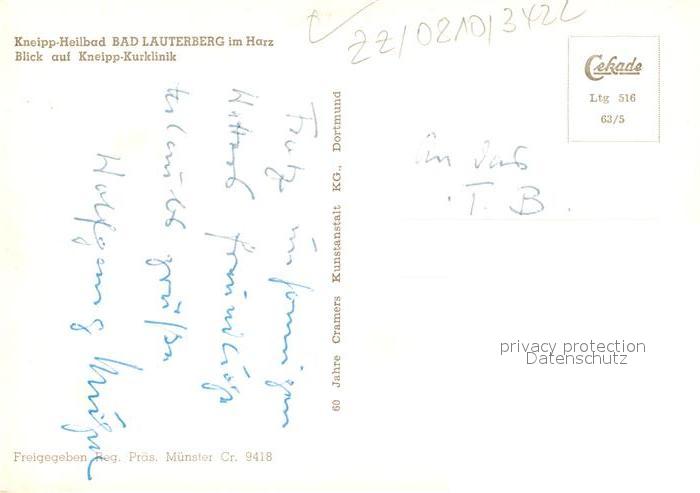 ZZ/0210/3422
Kneipp-Heilbad BAD LAUTERBERG im Harz
Blick auf Kneipp-Kurklinik
Cekade
Ltg 516
63/5
60 Jahre Cramers Kunstanstalt KG., Dortmund
Trotz
freundliche
Urlaubsgrüße
Wolfgang
An das
T. B.
privacy protection
Datenschutz
Freigegeben Reg. Präs. Münster Cr. 9418